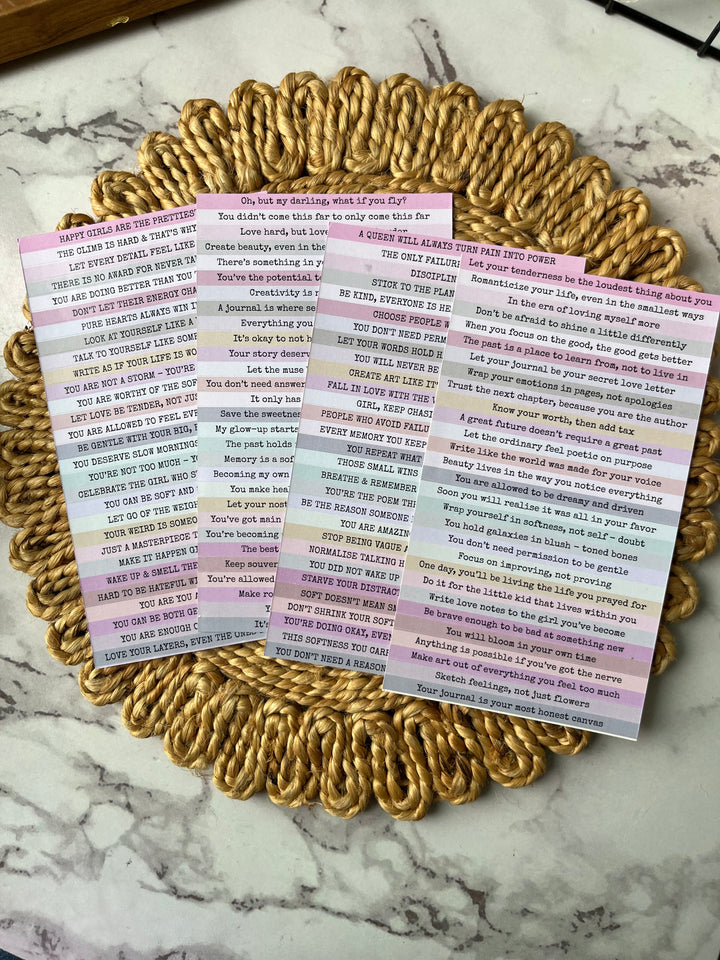 HAPPY GIRLS ARE THE PRETTIES
THE CLIMB IS HARD & THAT'S WHY
LET EVERY DETAIL FEEL LIKE
THERE IS NO AWARD FOR NEVER
YOU ARE DOING BETTER THAN YOU
DON'T LET THEIR ENERGY
PURE HEARTS ALWAYS WIN
LOOK AT YOURSELF LIKE A
TALK TO YOURSELF LIKE
WRITE AS IF YOUR LIFE IS
YOU ARE NOT A STORM –
YOU ARE WORTHY OF THE
LET LOVE BE TENDER, NOT
YOU ARE ALLOWED TO FEEL
BE GENTLE WITH YOUR BIG,
YOU DESERVE SLOW MORNINGS
YOU'RE NOT TOO MUCH –
CELEBRATE THE GIRL WHO
YOU CAN BE SOFT AND
LET GO OF THE
YOUR WEIRD IS
JUST A MASTERPIECE
MAKE IT HAPPEN
WAKE UP & SMELL THE
HARD TO BE HATEFUL
YOU ARE YOU
YOU CAN BE BOTH
YOU ARE ENOUGH
LOVE YOUR LAYERS, EVEN THE
Oh, but my darling, what if you fly?
You didn't come this far to only come this far
Love hard, but
Create beauty, even in the
There's something in
You've the potential
Creativity is
A journal is where
Everything you
It's okay to not
Your story
Let the muse
You don't need
It only has
Save the sweetness
My glow-up starts
The past holds
Memory is a
Becoming my own
You make
Let your
You've got main
You're becoming
The best
Keep
You're allowed
Make
It's
A QUEEN WILL ALWAYS TURN PAIN INTO POWER
THE ONLY
STICK TO THE
BE KIND, EVERYONE IS
CHOOSE PEOPLE
YOU DON'T NEED
LET YOUR WORDS HOLD
YOU WILL NEVER BE
CREATE ART LIKE
FALL IN LOVE WITH THE
GIRL, KEEP
PEOPLE WHO AVOID
EVERY MEMORY YOU KEEP
YOU REPEAT WHAT
THOSE SMALL WINS
BREATHE & REMEMBER
YOU'RE THE POEM
BE THE REASON SOMEONE
YOU ARE
STOP BEING VAGUE
NORMALISE TALKING
YOU DID NOT WAKE UP
STARVE YOUR
SOFT DOESN'T MEAN
DON'T SHRINK YOUR
YOU'RE DOING OKAY,
THIS SOFTNESS YOU
YOU DON'T NEED A REASON
Let your tenderness be the loudest thing about you
Romanticize your life, even in the smallest ways
In the era of loving myself more
Don't be afraid to shine a little differently
When you focus on the good, the good gets better
The past is a place to learn from, not to live in
Let your journal be your secret love letter
Wrap your emotions in pages, not apologies
Trust the next chapter, because you are the author
Know your worth, then add tax
A great future doesn't require a great past
Let the ordinary feel poetic on purpose
Write like the world was made for your voice
Beauty lives in the way you notice everything
You are allowed to be dreamy and driven
Soon you will realise it was all in your favor
Wrap yourself in softness, not self – doubt
You hold galaxies in blush – toned bones
You don't need permission to be gentle
Focus on improving, not proving
One day, you'll be living the life you prayed for
Do it for the little kid that lives within you
Write love notes to the girl you've become
Be brave enough to be bad at something new
You will bloom in your own time
Anything is possible if you've got the nerve
Make art out of everything you feel too much
Sketch feelings, not just flowers
Your journal is your most honest canvas